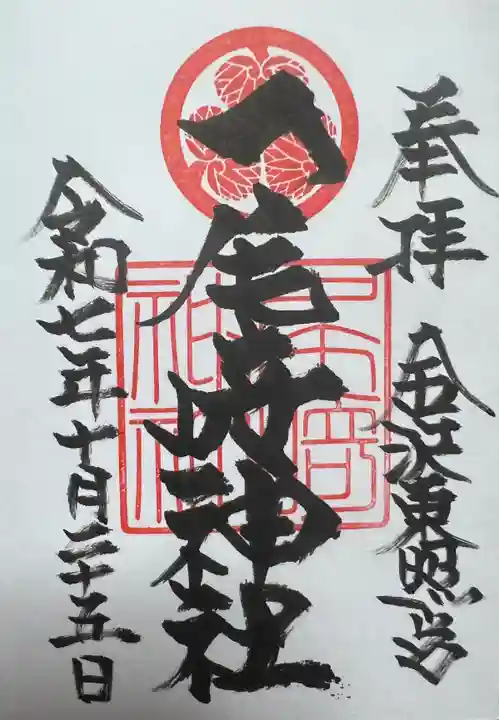 奉拝 金沢東照宮
尾崎神社
令和七年十月二十五日
尾崎
神社